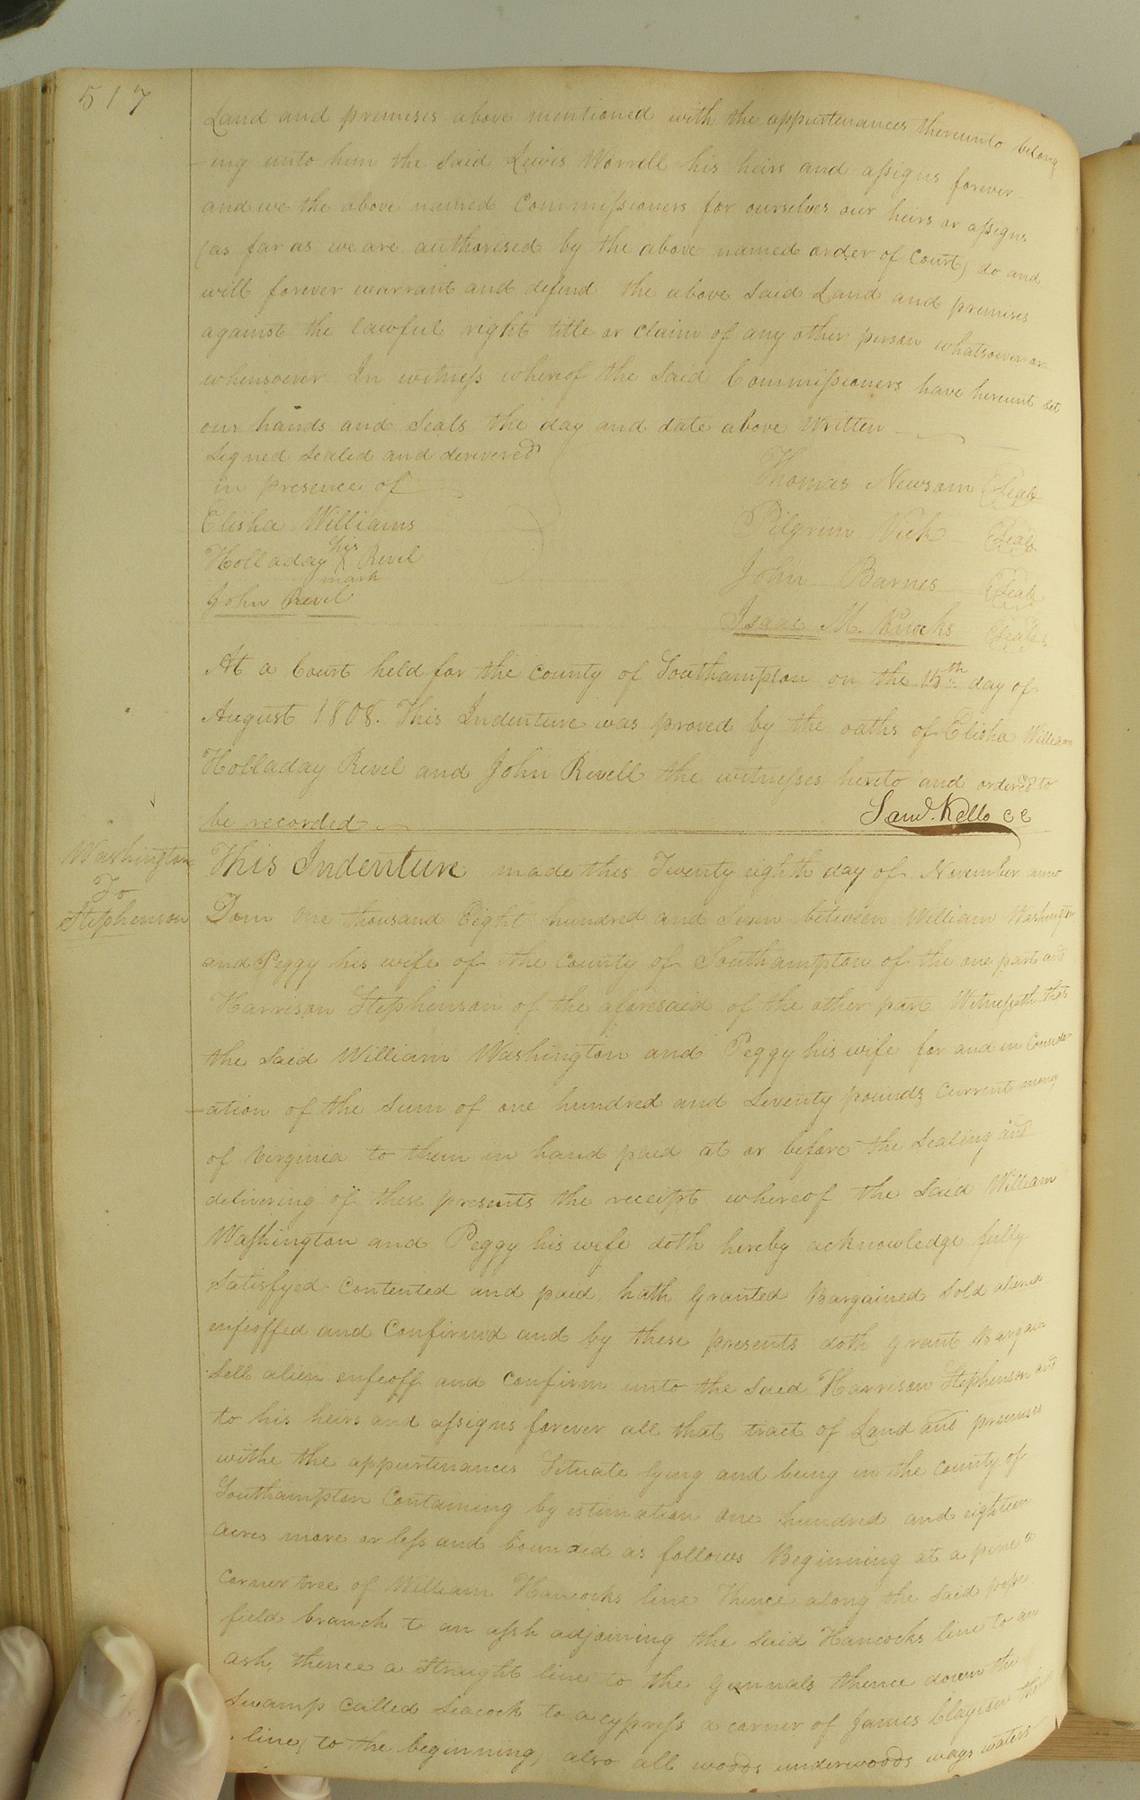 517
Land and premises above mentioned with the appurtenances thereunto belong
ing unto him the Said Lewis Worrell his heirs and assigns forever
and we the above named Commissioners for ourselves our heirs or assigns
(as far as we are authorised by the above named order of Court) do and
will forever warrant and defend the above Said Land and premises
against the lawful right title or claim of any other person whatsoever or
whensoever In witness whereof the Said Commissioners have hereunt set
our hands and Seals the day and date above Written
Signed Sealed and
in presence of
Thomas Newsom Seal
Elisha Williams
Pilgrim Vick Seal
Holladay his X mark Revel
John Barnes Seal
John Revel
Isaac M. Seal
At a Court held for the County of Southampton on the day of
August 1808. This Indenture was proved by the oaths of Elisha William
Holladay Revel and John Revell the witnesses hereto and ordered to
be recorded
Saml. Kello CC
Washington
To
Stephenson
This Indenture made this Twenty eighth day of November anno
Dom one thousand Eight hundred and Seven between William Washington
and Peggy his wife of the County of Southampton of the one part and
Harrison Stephenson of the aforesaid of the other part Witnesseth that
the Said William Washington and Peggy his wife for and in Consider
ation of the Sum of one hundred and Seventy pounds Current money
of Virginia to them in hand paid at or before the Sealing and
delivering of these presents the receipt whereof the Said William
Washington and Peggy his wife doth hereby acknowledge fully
Satisfyed Contented and paid, hath Granted Bargained Sold aliened
enfeoffed and Confirmd and by these presents doth grant Bargain
Sell alien enfeoff and Confirm unto the Said Harrison Stephenson and
to his heirs and assigns forever all that tract of Land and premises
withe the appurtenances Situate lying and being in the County of
Southampton Containing by estimation one hundred and eighteen
acres more or less and bounded as follows Beginning at a pine a
Corner tree of William Hancocks line Thence along the Said
field branch to an ash adjoining the Said Hancocks line to an
ash, thence a Straight line to the thence down the
Swamp Called Seacock to a cypress a corner of James Clayton
line, to the beginning, also all woods underwoods ways waters